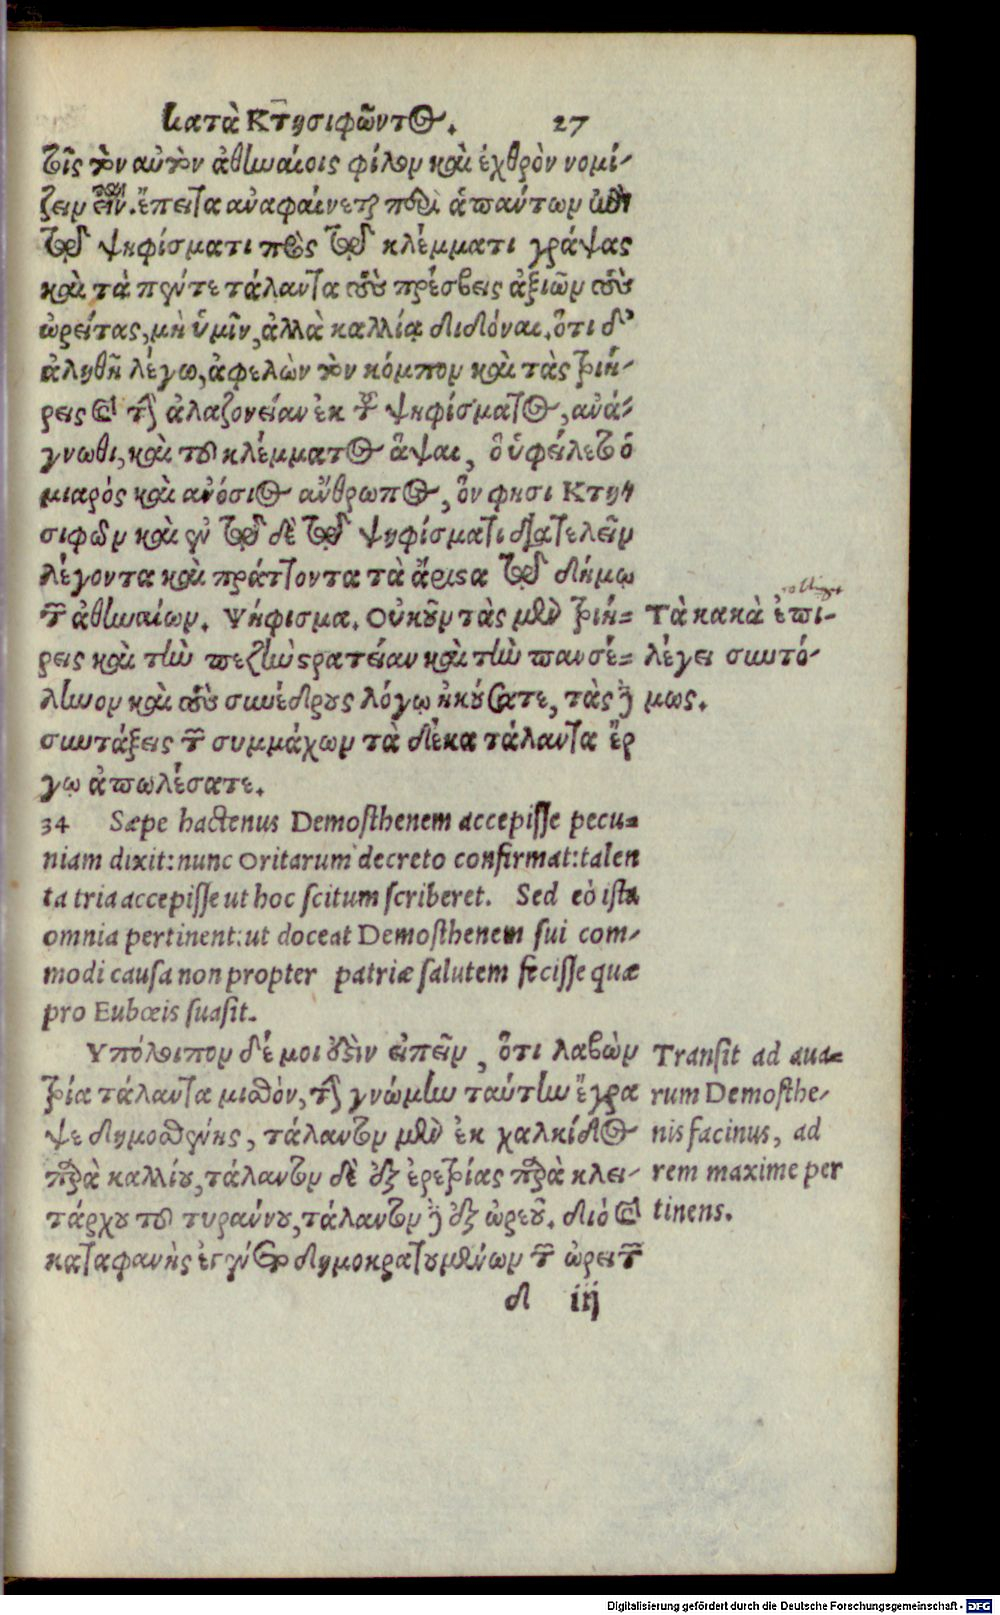 κατὰ Κτησιφῶντος. 27
τοῖς τὸν αὐτὸν ἀθηναίοις φίλον καὶ ἐχθρὸν νομί-
ζειν εἶν. ἔπειτα ἀναφαίνεται περὶ ἁπάντων ἐν
τῷ ψηφίσματι πρὸς τῷ κλέμματι γράψας
καὶ τὰ πέντε τάλαντα τοὺς πρέσβεις ἀξιῶν τοὺς
ὠρείτας, μὴ ὑμῖν, ἀλλὰ καλλίᾳ διδόναι. ὅτι δ'
ἀληθῆ λέγω, ἀφελὼν τὸν κόμπον καὶ τὰς τριή-
ρεις καὶ τὴν ἀλαζονείαν ἐκ τοῦ ψηφίσματος, ἀνά-
γνωθι, καὶ τοῦ κλέμματος ἅψαι, ὃ ὑφείλετο ὁ
μιαρὸς καὶ ἀνόσιος ἄνθρωπος, ὅν φησι Κτη-
σιφῶν καὶ ἐν τῷδε τῷ ψηφίσματι διατελεῖν
λέγοντα καὶ πράττοντα τὰ ἄριστα τῷ δήμῳ
τῶν ἀθηναίων. Ψήφισμα. Οὐκοῦν τὰς μὲν τριή-
ρεις καὶ τὴν πεζὴν στρατείαν καὶ τὴν πανσέ-
ληνον καὶ τοὺς συνέδρους λόγῳ ἠκούσατε, τὰς δὲ
συντάξεις τῶν συμμάχων τὰ δέκα τάλαντα ἔρ
γῳ ἀπωλέσατε.
Τὰ κακὰ ἐπι-
λέγει συντό-
μως.
34 Sæpe hactenus Demosthenem accepisse pecu-
niam dixit: nunc Oritarum decreto confirmat: talen
ta tria accepisse ut hoc scitum scriberet. Sed eò ista
omnia pertinent: ut doceat Demosthenem sui com-
modi causa non propter patriæ salutem fecisse quæ
pro Eubœis suasit.
Υπόλοιπον δέ μοι οὐδὲν εἰπεῖν, ὅτι λαβὼν
τρία τάλαντα μισθὸν, τὴν γνώμην ταύτην ἔγρα
ψε δημοσθένης, τάλαντον μὲν ἐκ χαλκίδος
παρὰ καλλίου, τάλαντον δὲ ἐξ ἐρετρίας παρὰ κλει-
τάρχου τοῦ τυράννου, τάλαντον δὲ ἐξ ὠρεοῦ. διὸ καὶ
καταφανὴς ἐγένετο δημοκρατουμένων τῶν ὠρειτῶν
Transit ad aua-
rum Demosthe-
nis facinus, ad
rem maxime per
tinens.
d iij
Digitalisierung gefördert durch die Deutsche Forschungsgemeinschaft - DFG